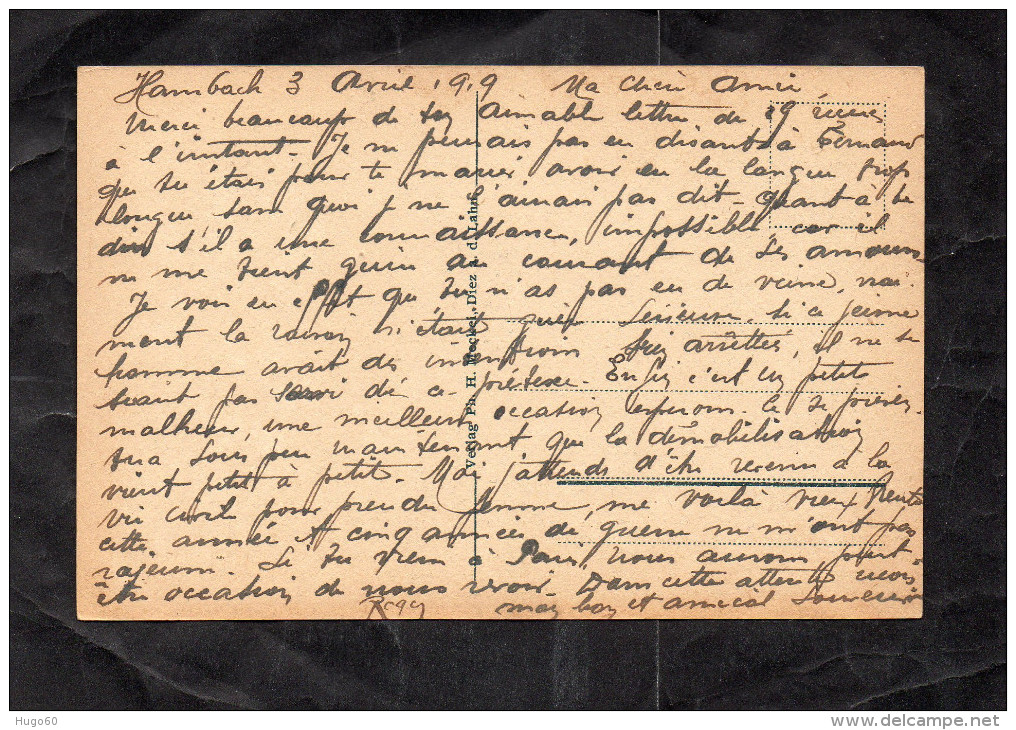 Hambach 3 Avril 1919 Ma chère Amie,
Merci beaucoup de ton aimable lettre du 19 reçue
à l'instant. Je ne pensais pas en disant à Fernand
que tu étais pour te marier avoir eu la langue trop
longue sans quoi je ne l'aurais pas dit. Quant à te
dire s'il a une connaissance, impossible, car il
ne me tient guère au courant de ses amours
Je vois en effet que tu n'as pas eu de veine, vrai-
ment la raison n'était guère sérieuse, si ce jeune
homme avait des intentions bien arrêtées, il ne se
serait pas servi de ce prétexte. Enfin c'est un petit
malheur, une meilleure occasion espérons-le se présen-
tera sous peu maintenant que la démobilisation
vient petit à petit. Moi j'attends d'être revenu à la
vie civile pour prendre femme, me voilà vieux trente
cette année et cinq années de guerre ne m'ont pas
rajeuni. Si tu viens à Paris, nous aurons peut-
être occasion de nous revoir. Dans cette attente reçois
mon bon et amical souvenir
Verlag Ph. H. Meckel, Diez a. d. Lahn.
Hugo60
www.delcampe.net